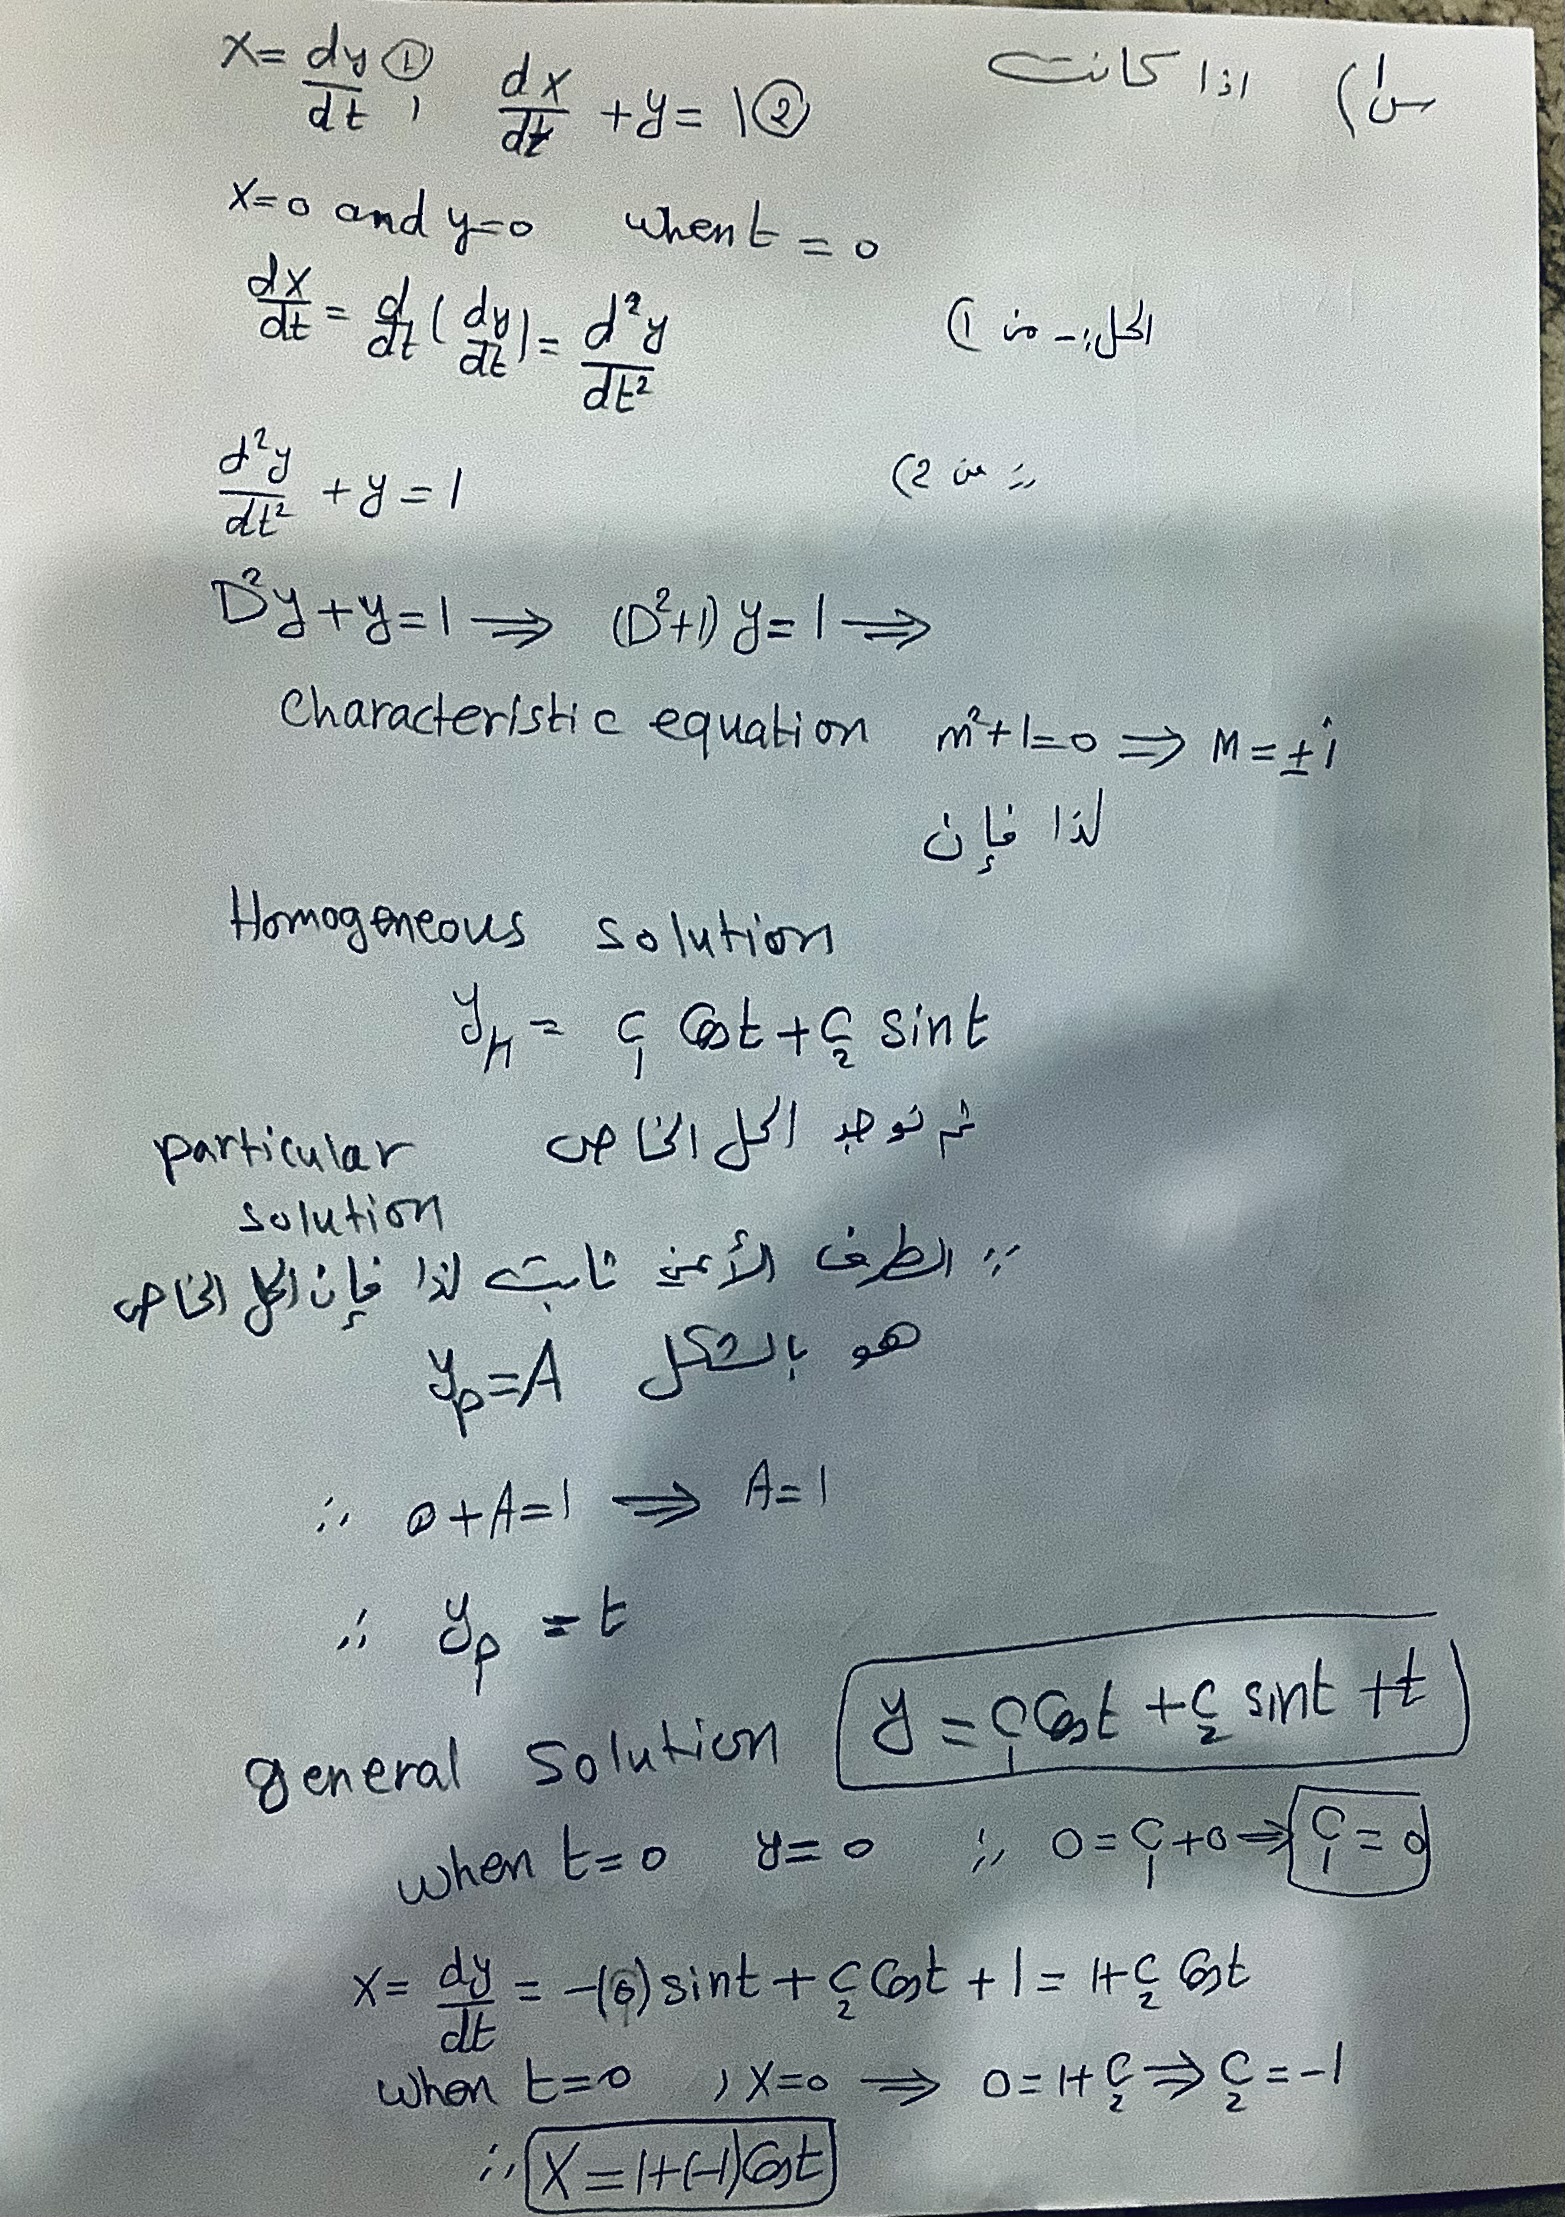 س1) اذا كانت x = dy/dt ① , dx/dt + y = 1 ②
x=0 and y=0 when t=0
الحل:- من 1) dx/dt = d/dt (dy/dt) = d²y/dt²
∴ من 2) d²y/dt² + y = 1
D²y + y = 1 ⇒ (D²+1) y = 1 ⇒
Characteristic equation m²+1=0 ⇒ M = ±i
لذا فإن
Homogeneous solution
y_h = C₁ Cos t + C₂ sin t
ثم نوجد الحل الخاص particular
solution
∵ الطرف الأيمن ثابت لذا فإن الحل الخاص
هو بالشكل y_p = A
∴ 0 + A = 1 ⇒ A = 1
∴ y_p = t
general solution y = C₁ Cos t + C₂ sin t + t
when t=0 y=0 ∴ 0 = C₁ + 0 ⇒ C₁ = 0
x = dy/dt = -(0) sin t + C₂ Cos t + 1 = 1 + C₂ Cos t
when t=0 , x=0 ⇒ 0 = 1 + C₂ ⇒ C₂ = -1
∴ X = 1+(-1) Cos t